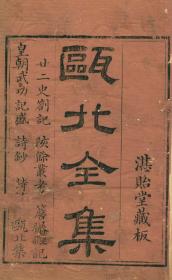 湛貽堂藏板
甌北全集
廿二史劄記 陔餘叢考 簷曝雜記
皇朝武功紀盛 詩鈔 甌北集